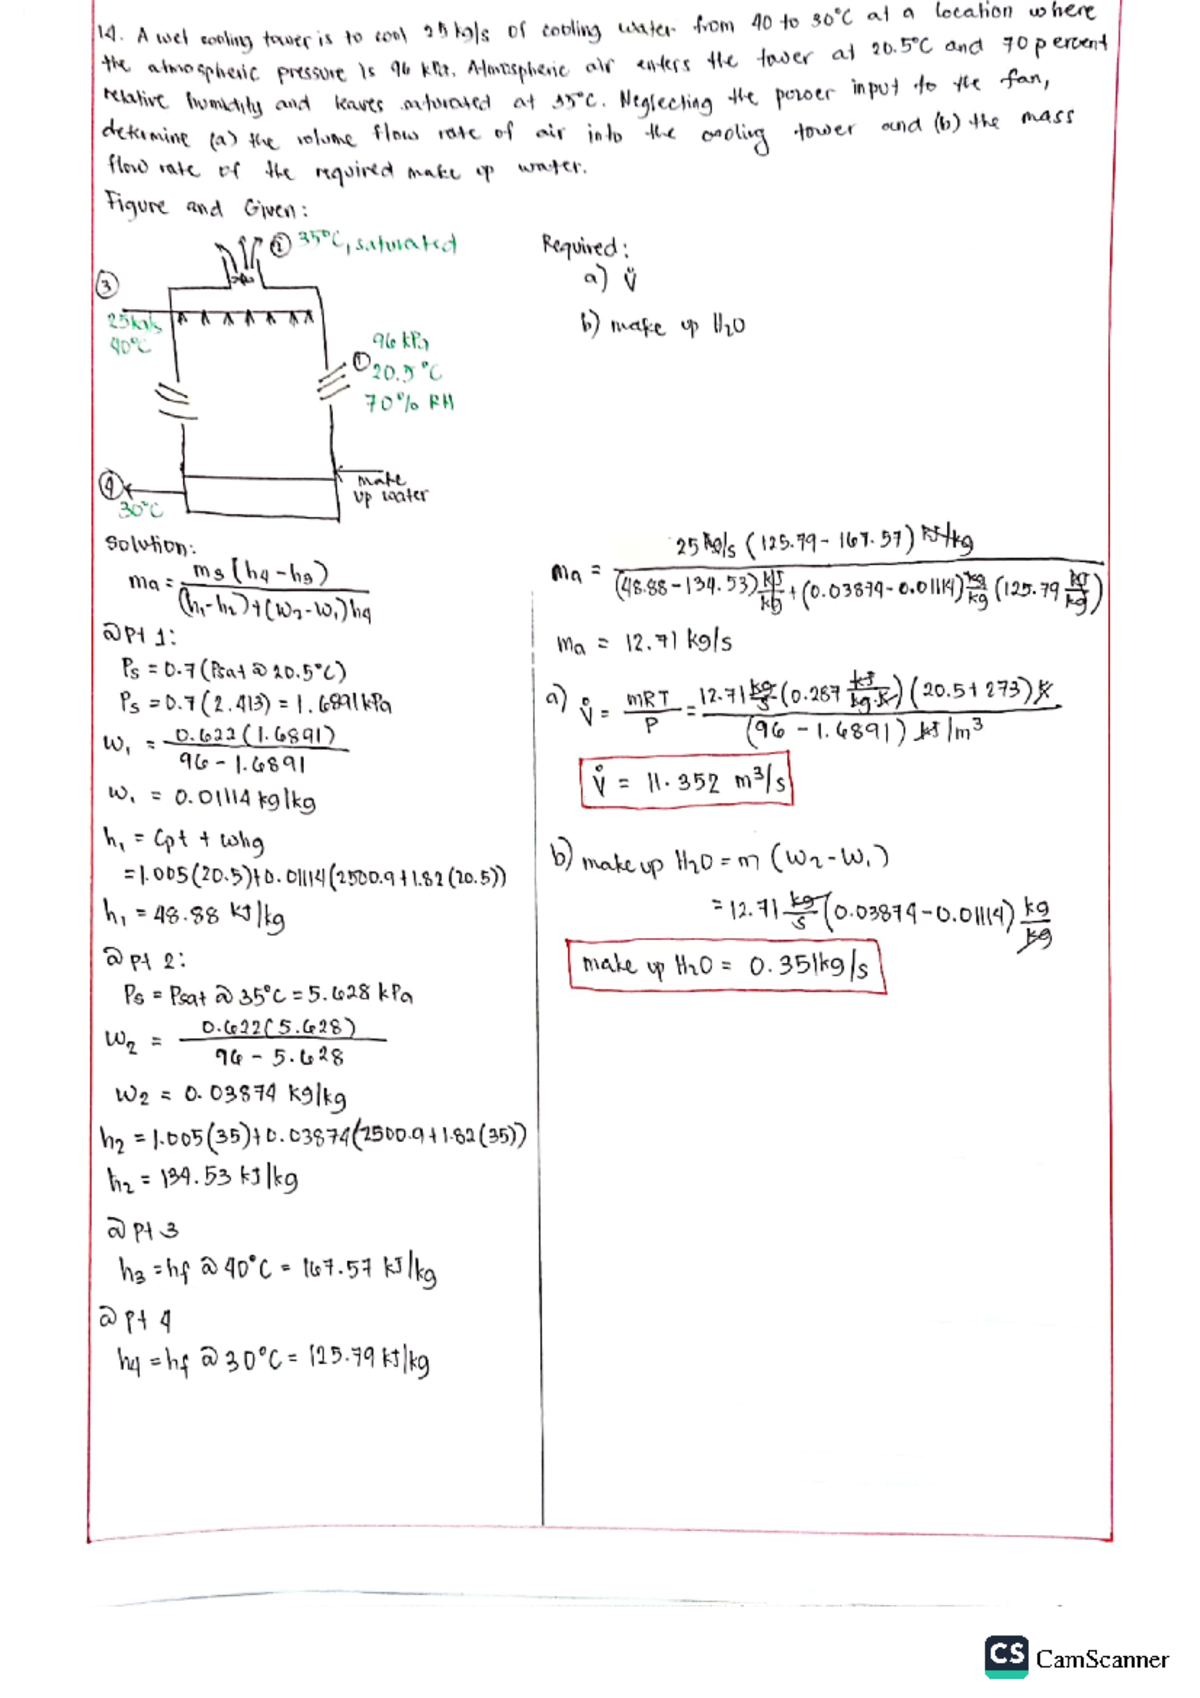 14. A wet cooling tower is to cool 25 kg/s of cooling water from 40 to 30°C at a location where
the atmospheric pressure is 96 kPa. Atmospheric air enters the tower at 20.5°C and 70 percent
relative humidity and leaves saturated at 35°C. Neglecting the power input to the fan,
determine (a) the volume flow rate of air into the cooling tower and (b) the mass
flow rate of the required make up water.
Figure and Given:
② 35°C, saturated
③
25kg/s
40°C
96 kPa
① 20.5°C
70% RH
④
30°C
make
up water
Required:
a) V̇
b) make up H₂O
Solution:
ma = m3 (h4 - h3) / (h1 - h2) + (w2 - w1) h4
@ pt 1:
Ps = 0.7 (Psat @ 20.5°C)
Ps = 0.7 (2.413) = 1.6891 kPa
w₁ = 0.622 (1.6891) / 96 - 1.6891
w₁ = 0.01114 kg/kg
h₁ = Cpt + whg
= 1.005(20.5) + 0.01114(2500.9 + 1.82(20.5))
h₁ = 48.88 KJ/kg
@ pt 2:
Ps = Psat @ 35°C = 5.628 kPa
w₂ = 0.622(5.628) / 96 - 5.628
w₂ = 0.03874 kg/kg
h₂ = 1.005(35) + 0.03874(2500.9 + 1.82(35))
h₂ = 134.53 kJ/kg
@ pt 3
h₃ = hf @ 40°C = 167.57 KJ/kg
@ pt 4
h4 = hf @ 30°C = 125.79 KJ/kg
ma = 25 kg/s (125.79 - 167.57) KJ/kg / (48.88 - 134.53) KJ/kg + (0.03874 - 0.01114) kg/kg (125.79 KJ/kg)
ma = 12.71 kg/s
a) V̇ = mRT / P = 12.71 kg/s (0.287 KJ/kg·K) (20.5 + 273) K / (96 - 1.6891) KJ/m³
V̇ = 11.352 m³/s
b) make up H₂O = m (w₂ - w₁)
= 12.71 kg/s (0.03874 - 0.01114) kg/kg
make up H₂O = 0.351kg/s
CS CamScanner